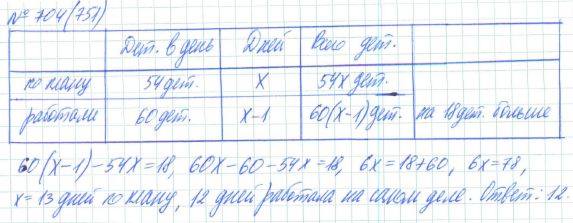 № 704(751)
Дет. в день Дней Всего дет.
по плану 54 дет. x 54x дет.
работали 60 дет. x-1 60(x-1) дет. на 18 дет. больше
60(x-1)-54x=18, 60x-60-54x=18, 6x=18+60, 6x=78,
x=13 дней по плану, 12 дней работала на самом деле. Ответ: 12.